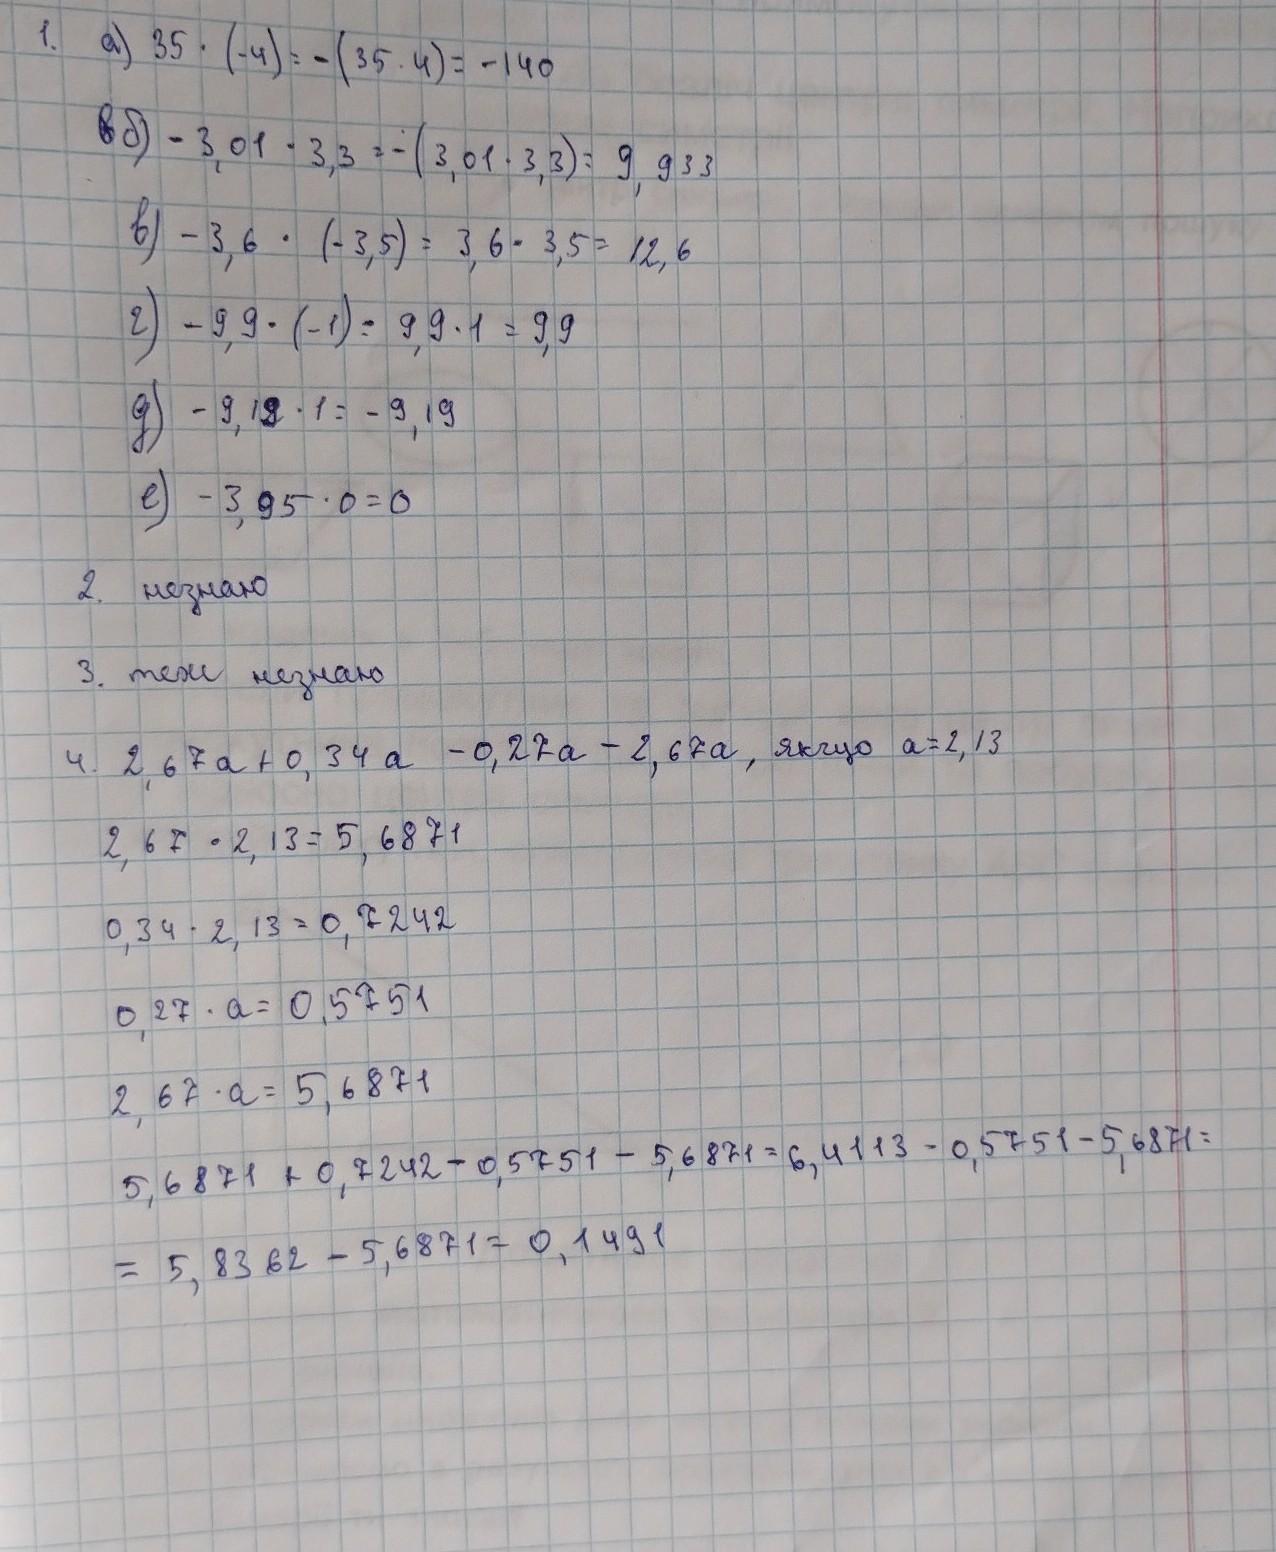 1. а) 35 · (-4) = -(35 · 4) = -140
б) - 3,01 · 3,3 = -(3,01 · 3,3) = 9,933
в) - 3,6 · (-3,5) = 3,6 · 3,5 = 12,6
г) - 9,9 · (-1) = 9,9 · 1 = 9,9
д) - 9,19 · 1 = - 9,19
е) - 3,95 · 0 = 0
2. незнаю
3. теж незнаю
4. 2,67a + 0,34a - 0,27a - 2,67a, якщо a = 2,13
2,67 · 2,13 = 5,6871
0,34 · 2,13 = 0,7242
0,27 · a = 0,5751
2,67 · a = 5,6871
5,6871 + 0,7242 - 0,5751 - 5,6871 = 6,4113 - 0,5751 - 5,6871 =
= 5,8362 - 5,6871 = 0,1491